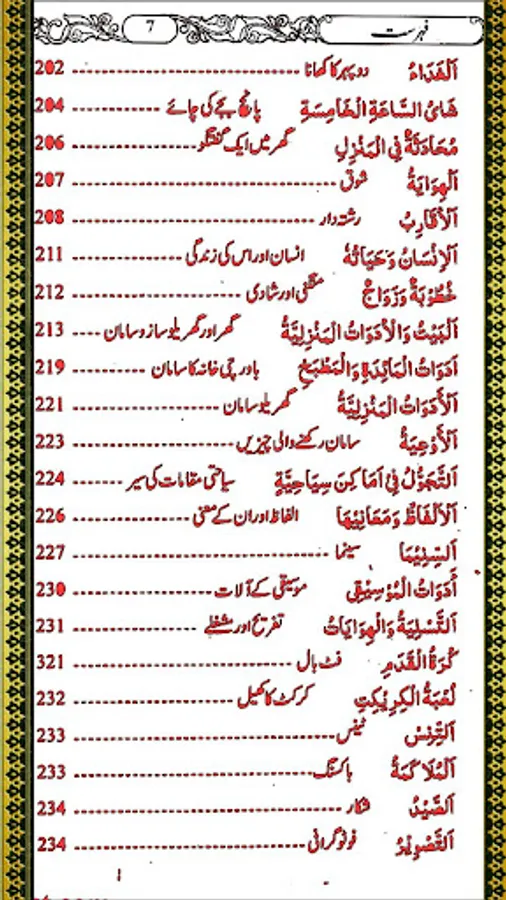 فہرست 7
اَلْغَدَاءُ دوپہر کا کھانا ---------- 202
شَائُ السَّاعَةِ الْخَامِسَةِ پانچ بجے کی چائے ---------- 204
مُحَادَثَةٌ فِي الْمَنْزِلِ گھر میں ایک گفتگو ---------- 206
اَلْهِوَايَةُ شوق ---------- 207
اَلْأَقَارِبُ رشتہ دار ---------- 208
اَلْاِنْسَانُ وَحَيَاتُهُ انسان اور اس کی زندگی ---------- 211
خُطُوْبَةٌ وَزَوَاجٌ منگنی اور شادی ---------- 212
اَلْبَيْتُ وَالْأَدَوَاتُ الْمَنْزِلِيَّةُ گھر اور گھریلو ساز و سامان ---- 213
اَدَوَاتُ الْمَائِدَةِ وَالْمَطْبَخِ باورچی خانہ کا سامان ---------- 219
اَلْأَدَوَاتُ الْمَنْزِلِيَّةُ گھریلو سامان ---------- 221
اَلْأَوْعِيَةُ سامان رکھنے والی چیزیں ---------- 223
اَلتَّجَوُّلُ فِيْ اَمَاكِنَ سِيَاحِيَّةٍ سیاحتی مقامات کی سیر ------ 224
اَلْاَلْفَاظُ وَمَعَانِيْهَا الفاظ اور ان کے معنی ---------- 226
اَلسِّنِيْمَا سینما ---------- 227
أَدَوَاتُ الْمُوْسِيْقِي موسیقی کے آلات ---------- 230
اَلتَّسْلِيَةُ وَالْهِوَايَاتُ تفریح اور مشغلے ---------- 231
كُرَةُ الْقَدَمِ فٹ بال ---------- 321
لُعْبَةُ الْكِرِيْكِتِ کرکٹ کا کھیل ---------- 232
اَلتِّنِسْ ٹینس ---------- 233
اَلْمُلَاكَمَةُ باکسنگ ---------- 233
اَلصَّيْدُ شکار ---------- 234
اَلتَّصْوِيْرُ فوٹو گرافی ---------- 234